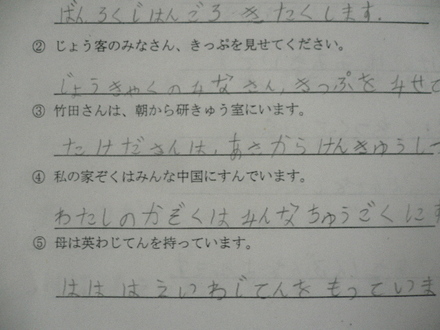 ばんろくじはんごろ きたくします.
② じょう客のみなさん、きっぷを見せてください。
じょうきゃくのみなさん,きっぷを みせて
③ 竹田さんは、朝から研きゅう室にいます。
たけださんは,あさから けんきゅうし
④ 私の家ぞくはみんな中国にすんでいます。
わたしの かぞくは みんな ちゅうごくに
⑤ 母は英わじてんを持っています。
ははは えいわじてんを もっていま